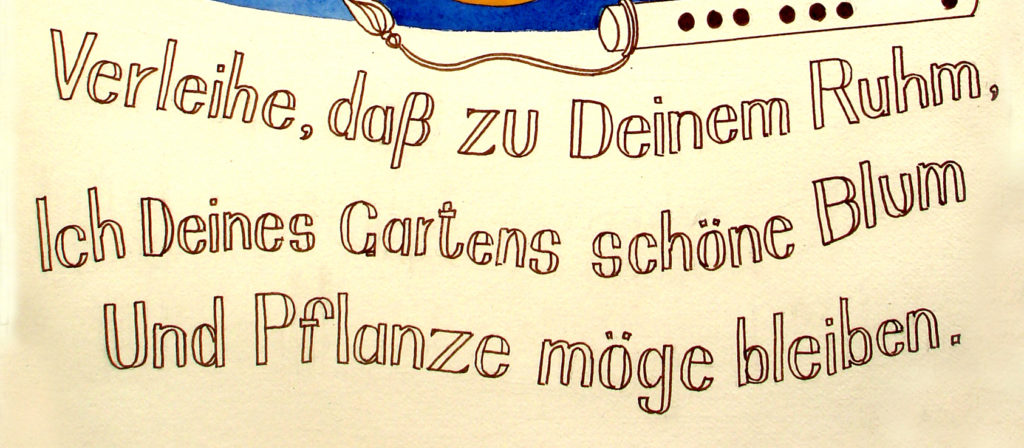 Verleihe, daß zu Deinem Ruhm,
Ich Deines Gartens schöne Blum
Und Pflanze möge bleiben.